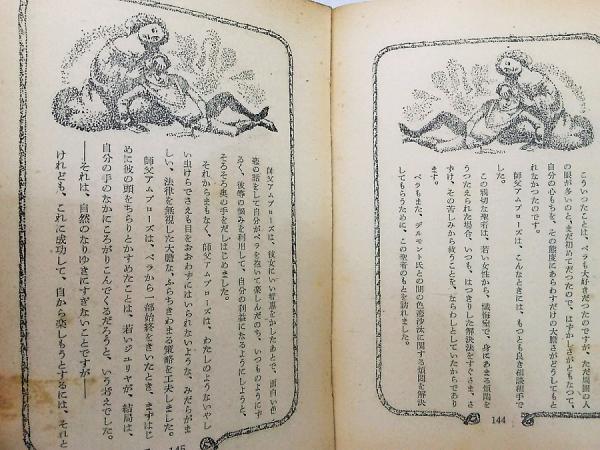 こういつたことは、ベラも大好きだつたのですが、ただ周囲の人
の眼が多いのと、まだ初めてだつたので、はずかしさがともなつて、
自分の心もちを、その態度にあらわすだけの大胆さがどうしてもと
れなかつたのです。
師父アムブローズは、こんなときには、もつとも良き相談相手で
この親切な聖者は、若い女性から、懺悔室で、身にあまる煩悶を
うつたえられた場合、いつも、はつきりした解決法をすぐさま、さ
ずけ、その苦しみから救うことを、ならわしとしていたからであり
ます。
ベラもまた、デルモント氏との間の色恋沙汰に関する煩悶を解決
してもらうために、この聖者のもとを訪れました。
144
師父アムブローズは、彼女にいい智慧をかしたあとで、面白い色
恋の話をして自分がベラを抱いて楽しんだのち、いつものようにず
るく、彼等の悩みを利用して、自分の利益になるようにしようと、
そろそろ奥の手をだしはじめました。
それからまもなく、師父アムブローズは、わたしのようないやし
い虫けらでさえも目をおおわずにはいられないような、みだらがま
しい、法律を無視した大膽な、ふらちきわまる策略を工夫しました。
師父アムブローズは、ベラから一部始終をきいたとき、まずはじ
めに彼の頭をちらりとかすめたことは、若いジユリヤが、結局は、
自分の手のなかにころがりこんでくるだろうと、いう考えでした。
――それは、自然のなりゆきにすぎないことですが――
けれども、これに成功して、自から楽しもうとするには、それと
145